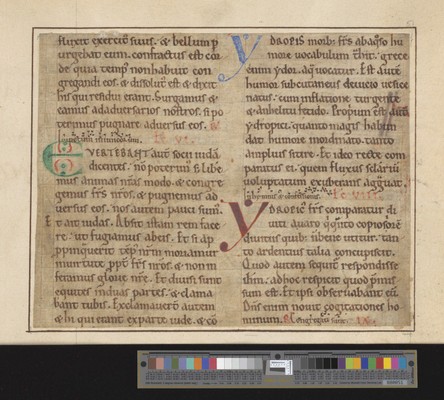 fluxit exercit̄ suus. & bellum ꝑ
urgebat eum. confractus est cor
de quia temp̄ non habuit con
gregandi eos. & dissolut̄ est & dixit
his qui residui erant. Surgamus &
eamus ad aduersarios nostros. si po
terimus pugnare aduersus eos. R̄
EVERTEBANT aut̄ eum iudā
dicentes. nō poterim̄ s; libe
mus animas nr̄as modo. & congre
gemus frs̄ nr̄os. & pugnemus ad
uersus eos. nos autem pauci sum̄.
Et ait iudas. Absit istam rem face
re. ut fugiamus ab eis. Et si ap
ppinquerit temp̄ nr̄m moriamur
in uirtute ppt̄ frs̄ nr̄os. & non in
feramus glorie nr̄e. Et diuisi sunt
equites in duas partes. & clama
bant tubis. Exclamauer̄t autem
& hi qui erant ex parte iude. & cō
YDROPIS morb; frs̄ ab aquoso hu
more uocabulum t̄hit. grece
enim ydor. aq̄ uocatur. Est aut̄
humor subcutaneus de uicio uesice
natus. cum inflatione turgente
& anhelitu fetido. Propriū est aut̄
ydropici. quanto magis habun
dat humore inordinato. tanto
amplius sitire. Et ideo recte com
paratus ei. quem fluxus
uoluptatum exuberans aggrauat.
YDROPIC̄ frs̄ comparatur di
uiti auaro q̄ quāto copiosior ē
diuitiis quib; n̄ bene utitur. tan
to ardentius talia concupiscit.
Quod autem sequit̄ respondisse
ihm̄. ad hoc respicit quod p̄mis
sum est. Et ipsi obseruabant eū.
Dn̄s enim nouit cogitationes ho
minum. R̄